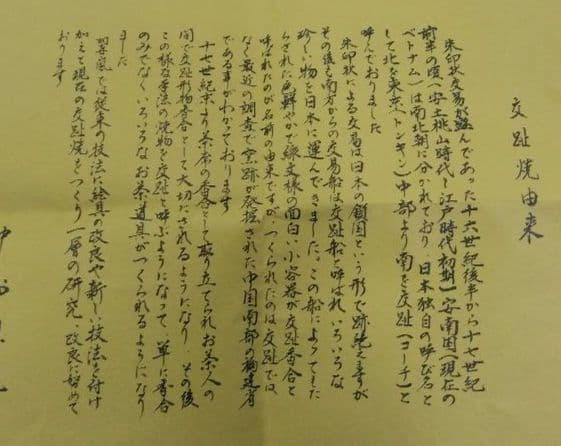 交趾焼由来
朱印状交易が盛んであった十六世紀後半から十七世紀
前半の頃(安土桃山時代~江戸時代初期)安南国(現在の
ベトナム)は南北朝に分かれており、日本独自の呼び名と
して北を東京(トンキン)中部より南を交趾(コーチ)と
呼んでおりました
朱印状による交易は日本の鎖国という形で跡絶えますが
その後も南方からの交易船は交趾船と呼ばれ いろいろな
珍しい物を日本に運んできました。この船によってもた
らされた色鮮やかで線文様の面白い小容器が交趾香合と
呼ばれたのが名前の由来ですが、つくられたのは交趾では
なく最近の調査で窯跡が発掘された中国南部の福建省
である事がわかっております
十七世紀末より茶席の香合として取り立てられお茶人の
間で交趾形物香合として大切にされるようになり、その後
この様な手法の焼物を交趾と呼ぶようになって、単に香合
のみでなくいろいろなお茶道具がつくられるようになり
ました
翠嵐では従来の技法に絵具の改良や新しい技法を付け
加えて現在の交趾焼をつくり一層の研究、改良に努めて
おります